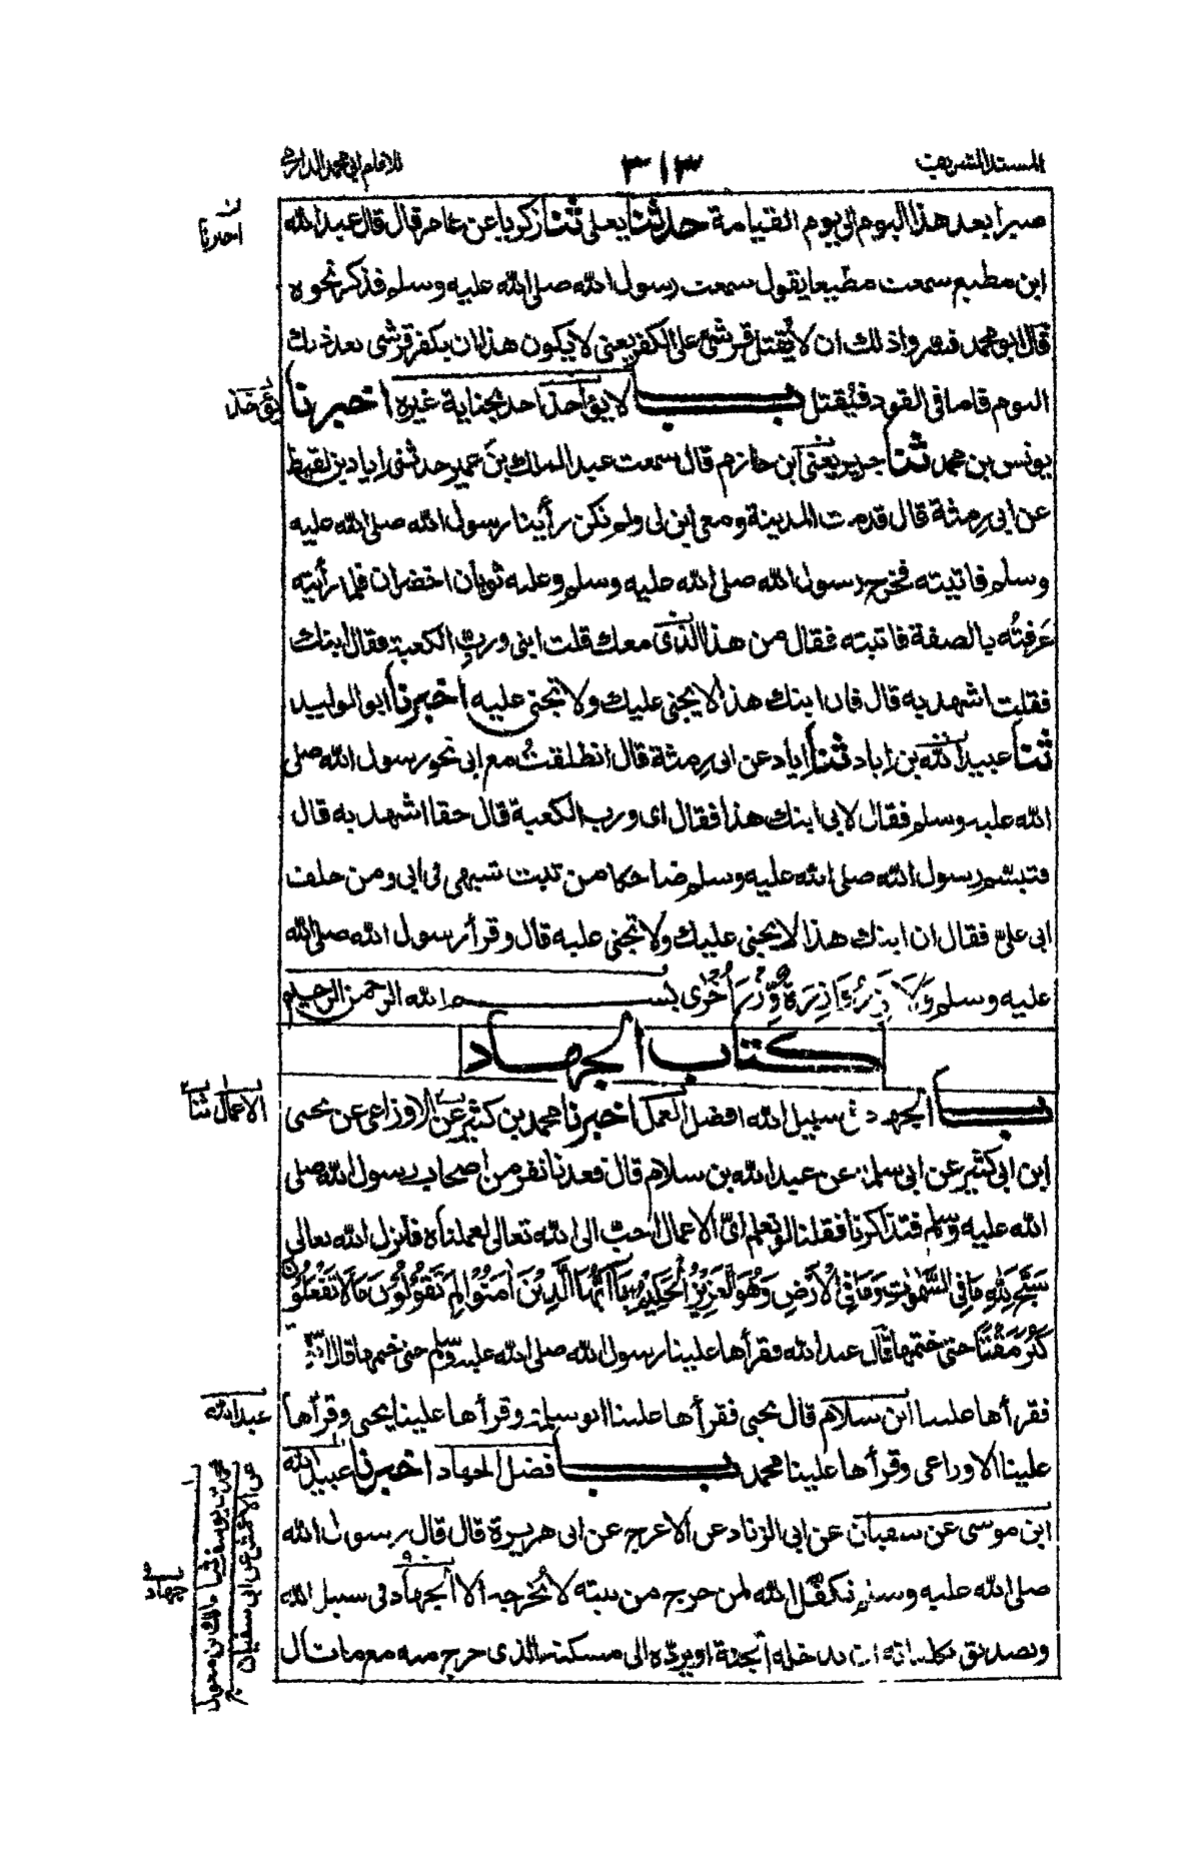 المسند الشريف ٣١٣ للامام ابي محمد الدارمي
صبرا بعد هذا اليوم الى يوم القيامة حدثنا يعلى ثنا زكريا عن عامر قال قال عبد الله
ابن مطيع سمعت مطيعا يقول سمعت رسول الله صلى الله عليه وسلم فذكر نحوه
قال ابو محمد فسروا ذلك ان لا يُقتل قرشي على الكفر يعني لا يكون هذا ان يكفر قرشي بعد ذلك
اليوم فاما في القود فيُقتل باب لا يؤاخذ احد بجناية غيره اخبرنا
يونس بن محمد ثنا جرير يعني ابن حازم قال سمعت عبد الملك بن عمير حدثني اياد بن لقيط
عن ابي رِمثة قال قدمت المدينة ومعي ابن لي ولم نكن رأينا رسول الله صلى الله عليه
وسلم فاتيته فخرج رسول الله صلى الله عليه وسلم وعليه ثوبان اخضران فلما رأيته
عَرفتُه بالصفة فاتيته فقال من هذا الذي معك قلت ابني وربِّ الكعبة فقال ابنك
فقلت اشهد به قال فان ابنك هذا لا يجني عليك ولا تجني عليه اخبرنا ابو الوليد
ثنا عبيد الله بن اياد ثنا اياد عن ابي رِمثة قال انطلقتُ مع ابي نحو رسول الله صلى
الله عليه وسلم فقال لابي ابنك هذا فقال اى ورب الكعبة قال حقا اشهد به قال
فتبسّم رسول الله صلى الله عليه وسلم ضاحكا من ثبت شبهي في ابي ومن حلف
ابي عليَّ فقال ان ابنك هذا لا يجني عليك ولا تجني عليه قال وقرأ رسول الله صلى الله
عليه وسلم وَلَا تَزِرُ وَازِرَةٌ وِّزْرَ أُخْرٰى بسم الله الرحمن الرحيم
كتاب الجهاد
باب الجهاد في سبيل الله افضل العمل اخبرنا محمد بن كثير عن الاوزاعي عن يحيى
ابن ابي كثير عن ابي سلمة عن عبد الله بن سلام قال قعدنا نفر من اصحاب رسول الله صلى
الله عليه وسلم فتذاكرنا فقلنا لو نعلم اىَّ الاعمال احبّ الى الله تعالى لعملناه فانزل الله تعالى
سَبَّحَ لِلّٰهِ مَا فِي السَّمٰوٰتِ وَمَا فِي الْاَرْضِ وَهُوَ الْعَزِيْزُ الْحَكِيْمُ يٰاَيُّهَا الَّذِيْنَ اٰمَنُوْا لِمَ تَقُوْلُوْنَ مَا لَا تَفْعَلُوْنَ
كَبُرَ مَقْتًا حتى ختمها قال عبد الله فقرأها علينا رسول الله صلى الله عليه وسلم حتى ختمها قال
فقرأها علينا ابن سلام قال يحيى فقرأها علينا ابو سلمة وقرأها علينا يحيى وقرأها
علينا الاوزاعي وقرأها علينا محمد باب فضل الجهاد اخبرنا عبيد الله
ابن موسى عن سفيان عن ابي الزناد عن الاعرج عن ابي هريرة قال قال رسول الله
صلى الله عليه وسلم تكفّل الله لمن خرج من بيته لا يُخرجه الا الجهاد في سبيل الله
وتصديق كلماته ان يدخله الجنة او يردّه الى مسكنه الذي خرج منه مع ما نال
الاعمال ثنا
عبد الله
محمد بن يوسف ثنا مالك بن مغول
عن الاعمش عن ابي سفيان
جهاد